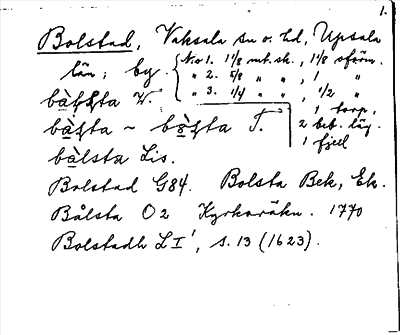 1.
Bolstad, Vaksala sn o. hd, Upsala
län; by. N:o 1. 1 1/8 mt. sk., 1 1/8 sförm.
" 2. 5/8 " " , 1 "
" 3. 1/4 " " , 1/2 "
1 torp.
2 beb. läg.
1 fjell
W.
~ T.
bålsta Lis.
Bolstad G84. Bolsta Bek, Ek.
Bålsta O2 Kyrkoräkn. 1770
Bolstadh LI', s. 13 (1623).